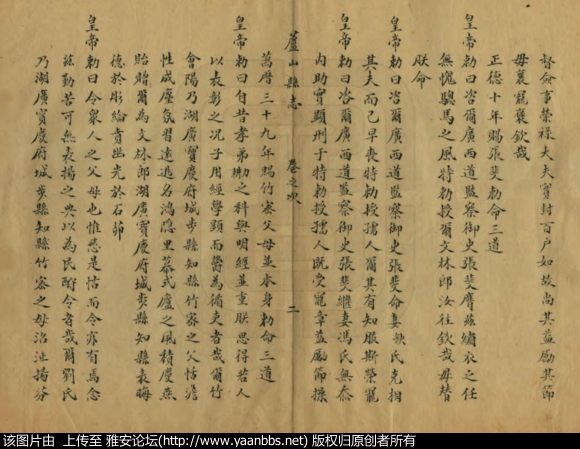 督僉事榮祿大夫實封百戶如故尚其益勵其節
毋襄寵褒欽哉
正德十年賜張斐敕命三道
皇帝勅曰咨爾廣西道監察御史張斐膺茲繡衣之任
無愧驄馬之風特勅授爾文林郎汝往欽哉毋替
朕命
皇帝勅曰咨爾廣西道監察御史張斐命妻 氏克相
其夫而已早喪特勅授孺人爾其有知服斯榮寵
皇帝勅曰咨爾廣西道監察御史張斐繼妻馮氏無忝
內助實顯刑于特勅授孺人既受寵章益勵節操
蘆山縣志 卷之 二
萬曆三十九年賜竹 父母並本身勅命三道
皇帝勅曰自昔孝弟 之科與明經並重朕思得若人
以表彰之況子用經學顯而 為循吏者哉爾竹
會陽乃湖廣寶慶府城步縣知縣竹密之父恬澹
性成塵氛習遠逃名鴻隱里慕式廬之風積慶燕
貽贈爾為文林郎湖廣寶慶府城步縣知縣表晦
德於彤綸賁幽光於石
皇帝勅曰令衆人之父母也惟慈是怙而令亦有焉念
茲勤苦可無表揚之典以為民 令者哉爾劉氏
乃湖廣寶慶府城步縣知縣竹密之母沼沚揚芬
该图片由 上传至 雅安论坛(http://www.yaanbbs.net) 版权归原创者所有